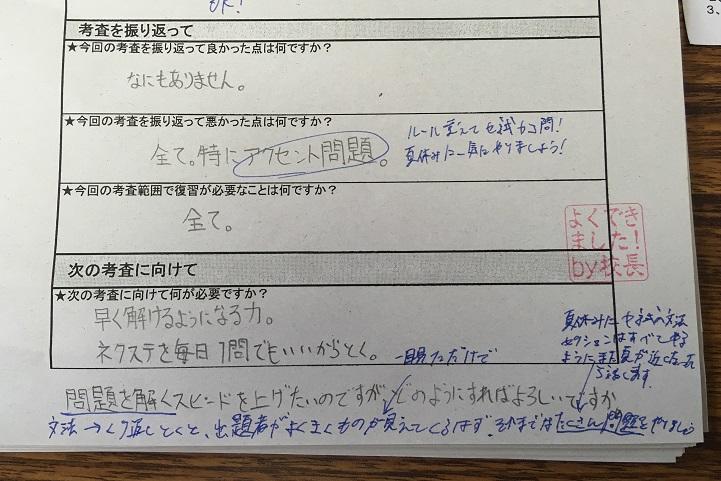 OK!
3、
考査を振り返って
★今回の考査を振り返って良かった点は何ですか?
なにもありません。
★今回の考査を振り返って悪かった点は何ですか?
全て。特にアクセント問題。
ルール覚えてセ試カコ問!
夏休みに一気にやりましょう!
★今回の考査範囲で復習が必要なことは何ですか?
全て。
よくでき
ました!
by校長
次の考査に向けて
★次の考査に向けて何が必要ですか?
早く解けるようになる力。
ネクステを毎日1問でもいいからとく。
一目見ただけで
夏休みにセ試の文法
セクションはすべて
ようにまた夏が近くなったら
話します。
問題を解くスピードを上げたいのですがどのようにすればよろしいですか
文法→くり返しとくと、出題者がよくまくものが見えてくるはず。それまではたくさん問題をやりましょう